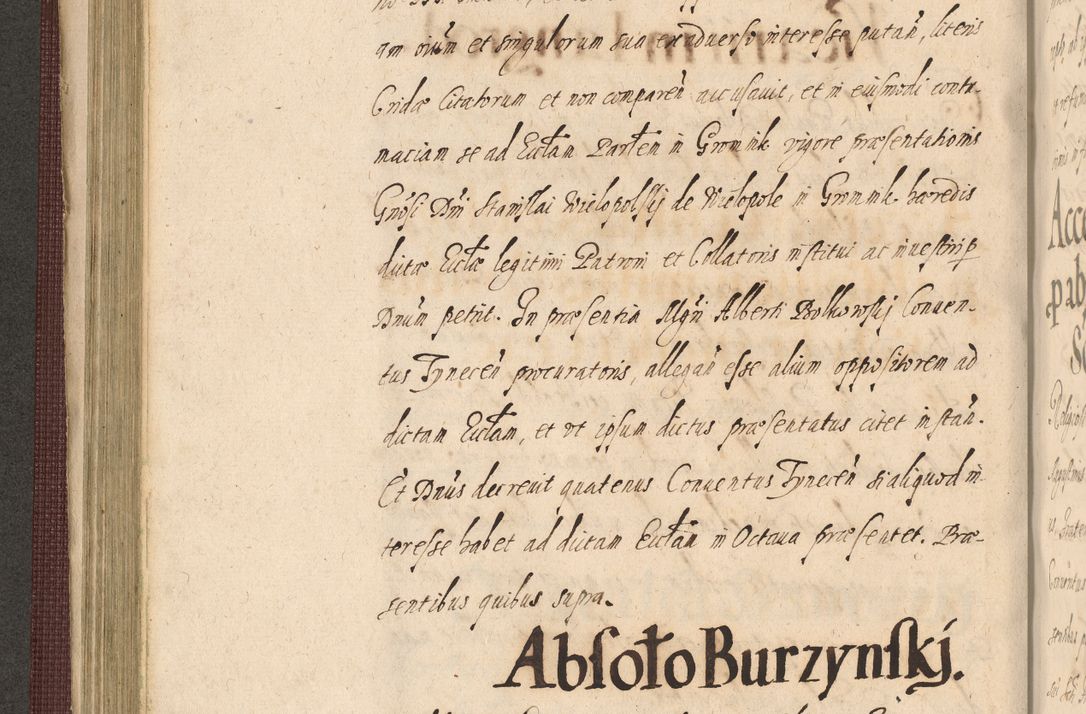 am oiũm et singulorum sua ex adverso interesse putañ, literis
Cridæ Citatorum et non compareñ accusavit, et in eiusmodi contu-
maciam se ad Ecclãm Parlem in Gromnik vigore præsentationis
Gnõsi Dñi Stanislai Wielopolskij de Wielopole in Gromnik hæredis
dictæ Ecclæ legitimi Patroni et Collatoris institui ac investiri p
Dnũm petiit. In præsentia Mgñi Alberti Bolkowskij Conven-
tus Tyneceñ procuratoris, allegañ esse alium oppositorem ad
dictam Ecclãm, et ut ipsum dictus præsentatus citet instañ.
Et Dnũs decrevit quatenus Conventus Tyneceñ si aliquod in-
teresse habet ad dictam Ecclãm in Octava præsentet. Præ-
sentibus quibus supra.
Absoło Burzynskj.